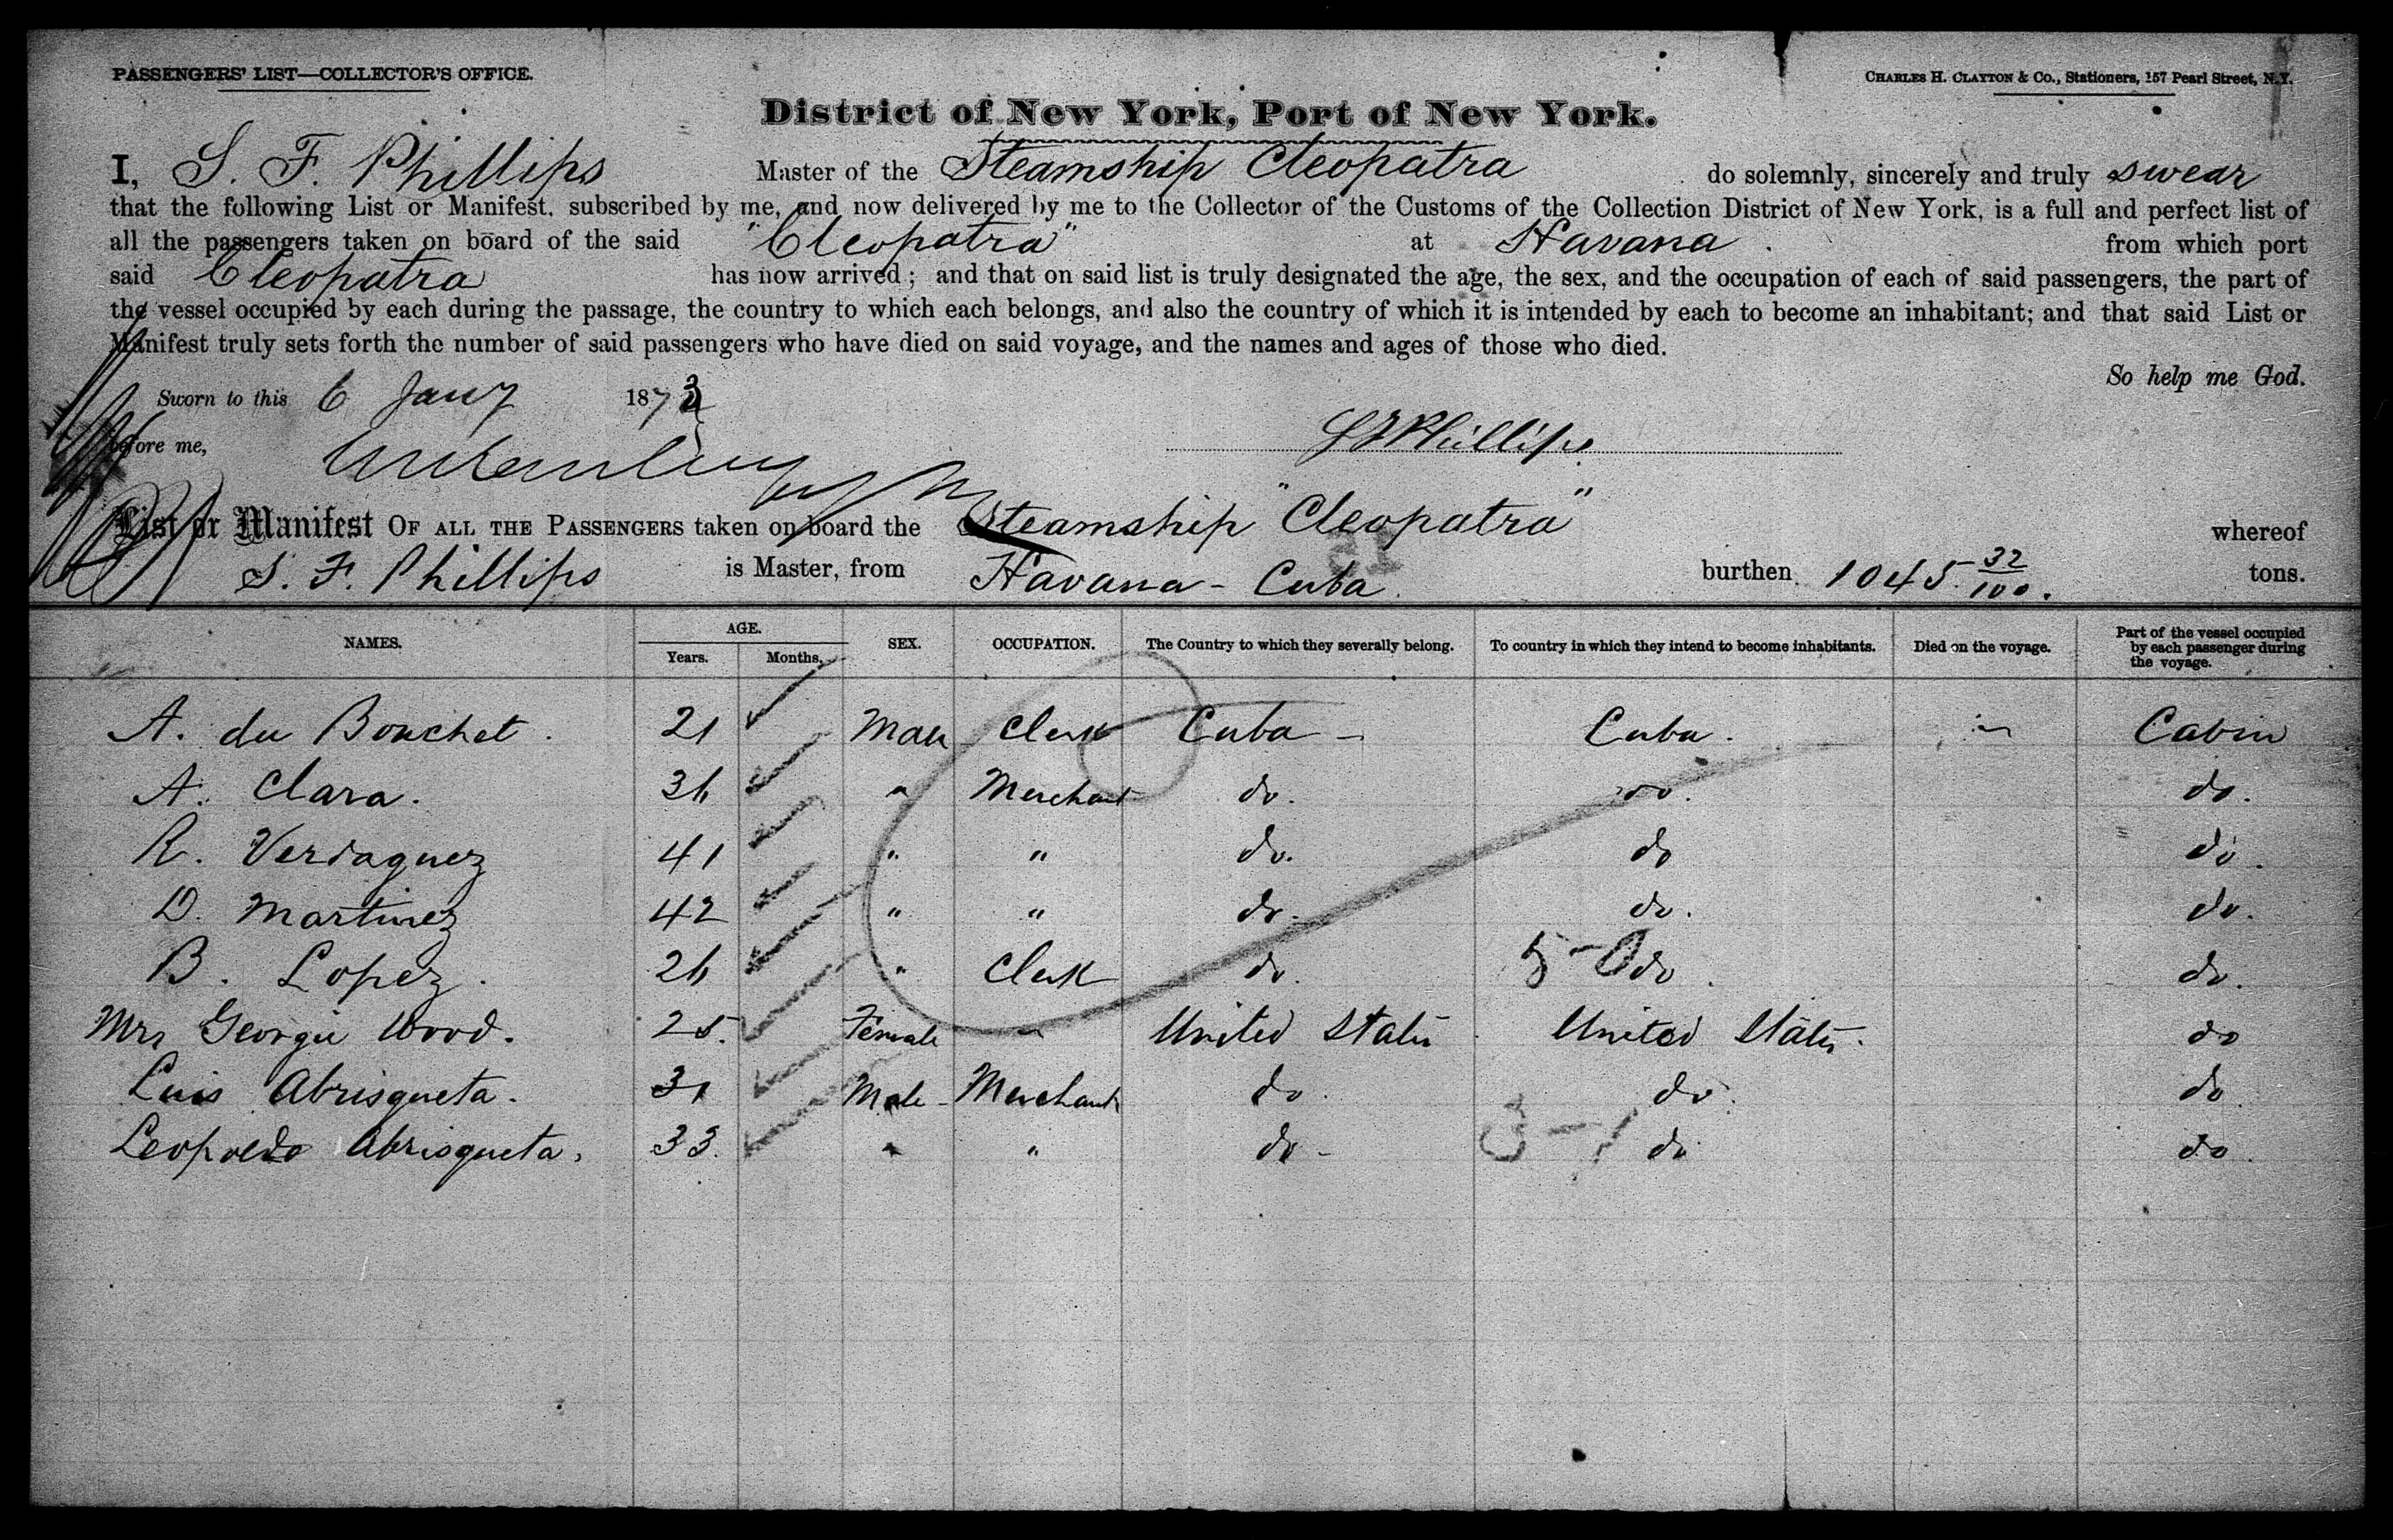 PASSENGERS' LIST—COLLECTOR'S OFFICE.
CHARLES H. CLAYTON & CO., Stationers, 157 Pearl Street, N.Y.
District of New York, Port of New York.
I, S. F. Phillips Master of the Steamship Cleopatra do solemnly, sincerely and truly swear
that the following List or Manifest, subscribed by me, and now delivered by me to the Collector of the Customs of the Collection District of New York, is a full and perfect list of
all the passengers taken on board of the said "Cleopatra" at Havana from which port
said Cleopatra has now arrived; and that on said list is truly designated the age, the sex, and the occupation of each of said passengers, the part of
the vessel occupied by each during the passage, the country to which each belongs, and also the country of which it is intended by each to become an inhabitant; and that said List or
Manifest truly sets forth the number of said passengers who have died on said voyage, and the names and ages of those who died.
So help me God.
Sworn to this 6 Jany 1873
before me,
S F Phillips
List or Manifest OF ALL THE PASSENGERS taken on board the Steamship "Cleopatra" whereof
S. F. Phillips is Master, from Havana - Cuba. burthen 1045 32/100. tons.
NAMES. AGE. Years. Months. SEX. OCCUPATION. The Country to which they severally belong. To country in which they intend to become inhabitants. Died on the voyage. Part of the vessel occupied by each passenger during the voyage.
A. du Bouchet. 21 Male Clerk Cuba - Cuba. Cabin
A. Clara. 36 " Merchant do. do. do.
R. Verdaguez 41 " " do. do do.
D. Martinez 42 " " do. do. do.
B. Lopez. 26 " Clerk do. 5-0 do. do.
Mrs Georgie Wood. 25. Female - United States United States. do
Luis Abrisqueta. 31 Male - Merchant do. do. do
Leopoldo Abrisqueta. 33. " " do - 3-1 do do.